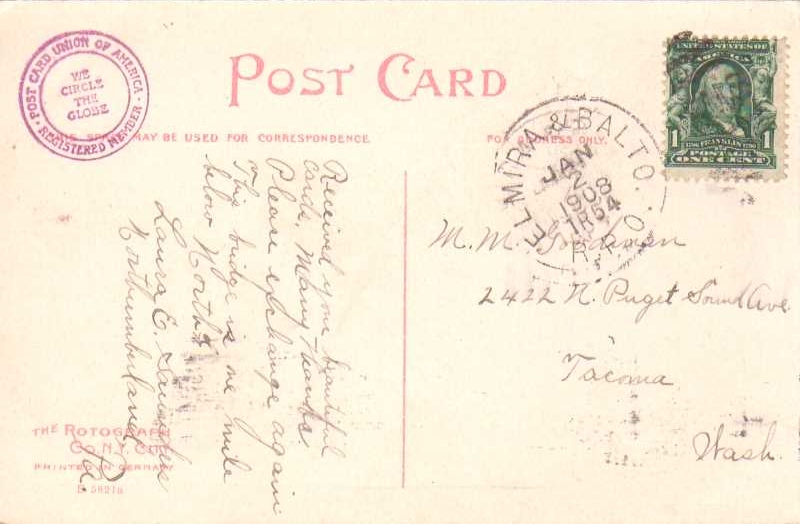 POST CARD UNION OF AMERICA
REGISTERED MEMBER
WE
CIRCLE
THE
GLOBE
POST CARD
THIS SPACE MAY BE USED FOR CORRESPONDENCE.
FOR ADDRESS ONLY.
UNITED STATES OF
AMERICA
1 FRANKLIN 1
POSTAGE
ONE CENT
ELMIRA & BALTO.
JAN
2
1908
TR54
R.P.O.
Received your beautiful
cards. Many thanks.
Please exchange again
This bridge is one mile
below North'd
Laura E.
Northumberland
Pa.
M. M. Goodman
2422 N. Puget Sound Ave.
Tacoma
Wash.
THE ROTOGRAPH
CO. N.Y. CITY
PRINTED IN GERMANY